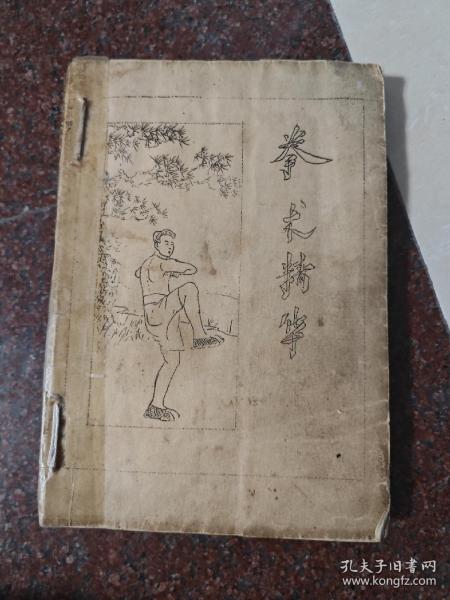 拳术精华
孔夫子旧书网
www.kongfz.com